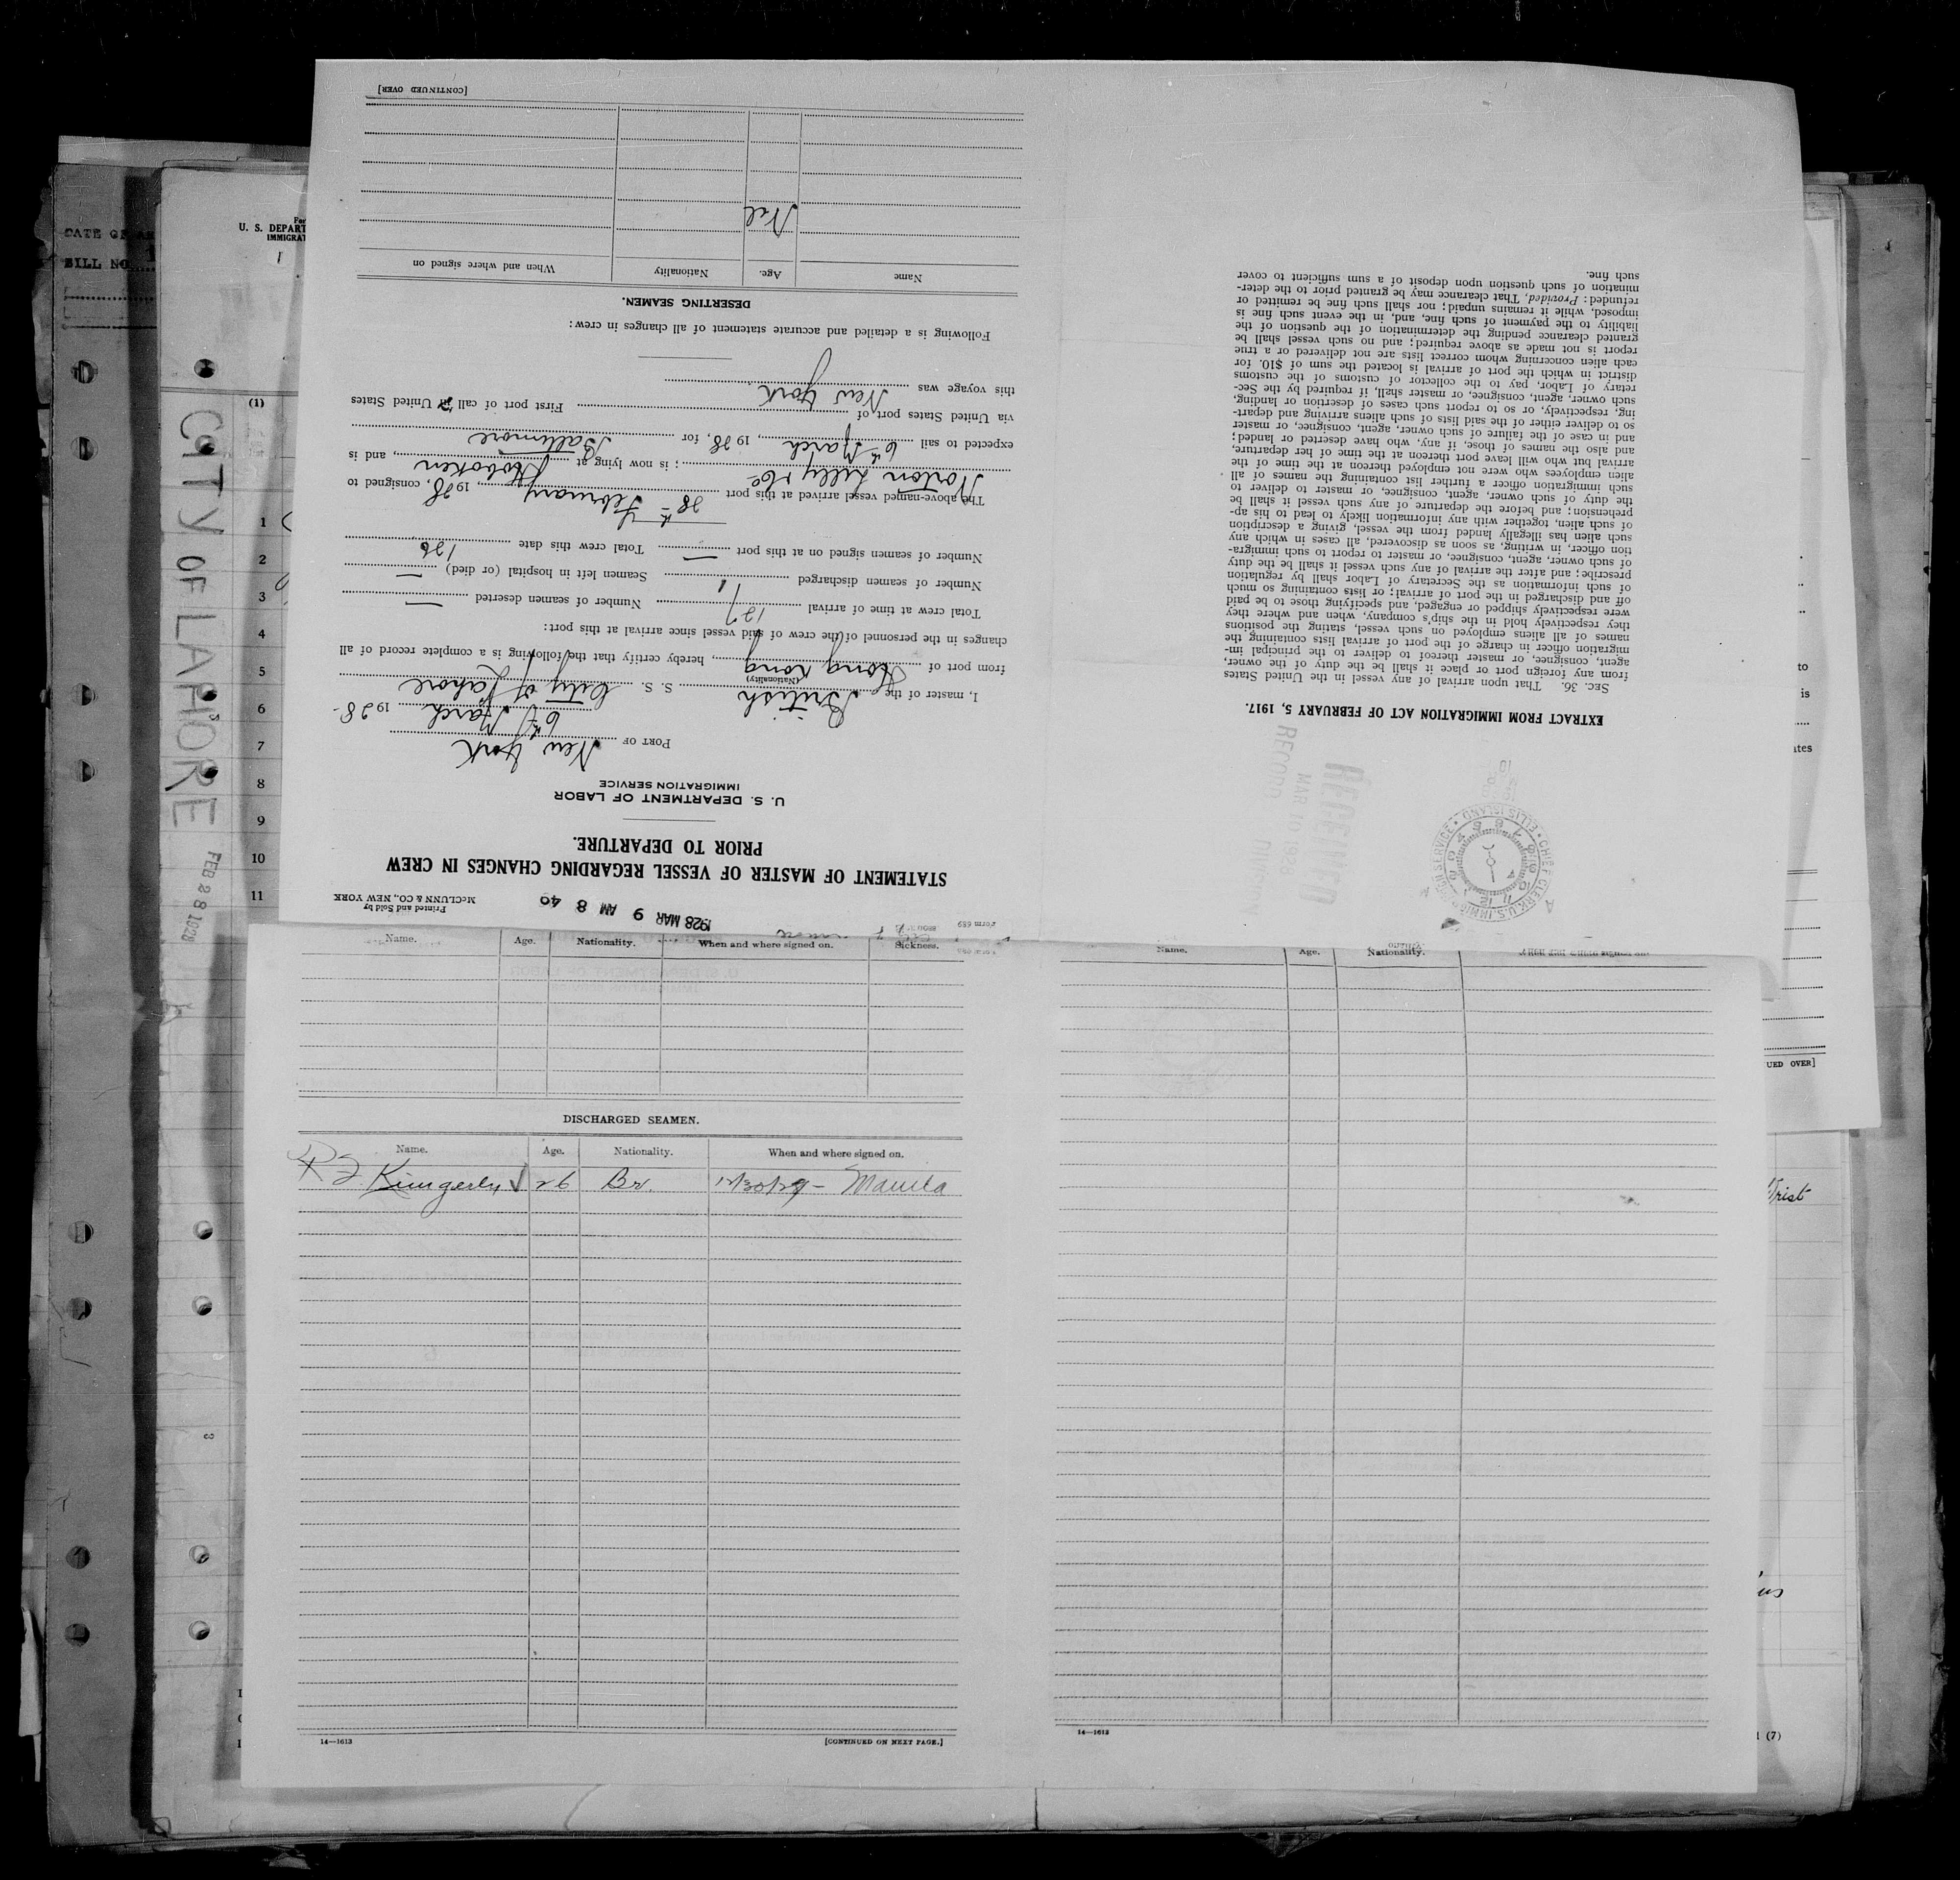 DATE OF
BILL NO. 1
U. S. DEPART
IMMIGRAT
(1)
CITY OF LAHORE
FEB 28 1928
1
2
3
4
5
6
7
8
9
10
11
Form 689
1928 MAR 9 AM 8 40
Printed and Sold by
McCLUNN & CO., NEW YORK
STATEMENT OF MASTER OF VESSEL REGARDING CHANGES IN CREW
PRIOR TO DEPARTURE.
U. S. DEPARTMENT OF LABOR
IMMIGRATION SERVICE
PORT OF New York
6th March 1928.
I, master of the British S. S. City of Lahore
(Nationality)
from port of Hong Kong, hereby certify that the following is a complete record of all
changes in the personnel of the crew of said vessel since arrival at this port:
Total crew at time of arrival 127 Number of seamen deserted —
Number of seamen discharged 1 Seamen left in hospital (or died) —
Number of seamen signed on at this port — Total crew this date 126
The above-named vessel arrived at this port 28th February 1928, consigned to
Norton Lilly & Co; is now lying at Hoboken, and is
expected to sail 6th March, 1928, for Baltimore
via United States port of First port of call in United States
this voyage was New York
Following is a detailed and accurate statement of all changes in crew:
DESERTING SEAMEN.
Name Age. Nationality When and where signed on
Nil
[CONTINUED OVER]
CHIEF CLERK, U.S. IMMIGRATION SERVICE ELLIS ISLAND
RECORD DIVISION
MAR 10 1928
EXTRACT FROM IMMIGRATION ACT OF FEBRUARY 5, 1917.
SEC. 36. That upon arrival of any vessel in the United States
from any foreign port or place it shall be the duty of the owner,
agent, consignee, or master thereof to deliver to the principal im-
migration officer in charge of the port of arrival lists containing the
names of all aliens employed on such vessel, stating the positions
they respectively hold in the ship's company, when and where they
were respectively shipped or engaged, and specifying those to be paid
off and discharged in the port of arrival; or lists containing so much
of such information as the Secretary of Labor shall by regulation
prescribe; and after the arrival of any such vessel it shall be the duty
of such owner, agent, consignee, or master to report to such immigra-
tion officer, in writing, as soon as discovered, all cases in which any
such alien has illegally landed from the vessel, giving a description
of such alien, together with any information likely to lead to his ap-
prehension; and before the departure of any such vessel it shall be
the duty of such owner, agent, consignee, or master to deliver to
such immigration officer a further list containing the names of all
alien employees who were not employed thereon at the time of the
arrival but who will leave port thereon at the time of her departure,
and also the names of those, if any, who have deserted or landed;
and in case of the failure of such owner, agent, consignee, or master
so to deliver either of the said lists of such aliens arriving and depart-
ing, respectively, or so to report such cases of desertion or landing,
such owner, agent, consignee, or master shall, if required by the Sec-
retary of Labor, pay to the collector of customs of the customs
district in which the port of arrival is located the sum of $10. for
each alien concerning whom correct lists are not delivered or a true
report is not made as above required; and no such vessel shall be
granted clearance pending the determination of the question of the
liability to the payment of such fine, and, in the event such fine is
imposed, while it remains unpaid; nor shall such fine be remitted or
refunded: Provided, That clearance may be granted prior to the deter-
mination of such question upon deposit of a sum sufficient to cover
such fine.
Name. Age. Nationality. When and where signed on. Sickness.
Name. Age. Nationality.
DISCHARGED SEAMEN.
Name. Age. Nationality. When and where signed on.
26 Br. Manila
14—1613
[CONTINUED ON NEXT PAGE.]
14—1613
to
is
ates
UED OVER]
(7)